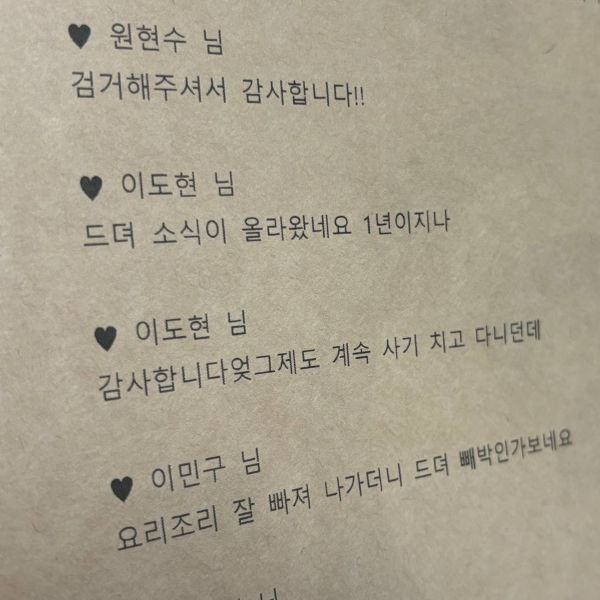 ♥ 원현수 님
검거해주셔서 감사합니다!!
♥ 이도현 님
드뎌 소식이 올라왔네요 1년이지나
♥ 이도현 님
감사합니다엊그제도 계속 사기 치고 다니던데
♥ 이민구 님
요리조리 잘 빠져 나가더니 드뎌 빼박인가보네요